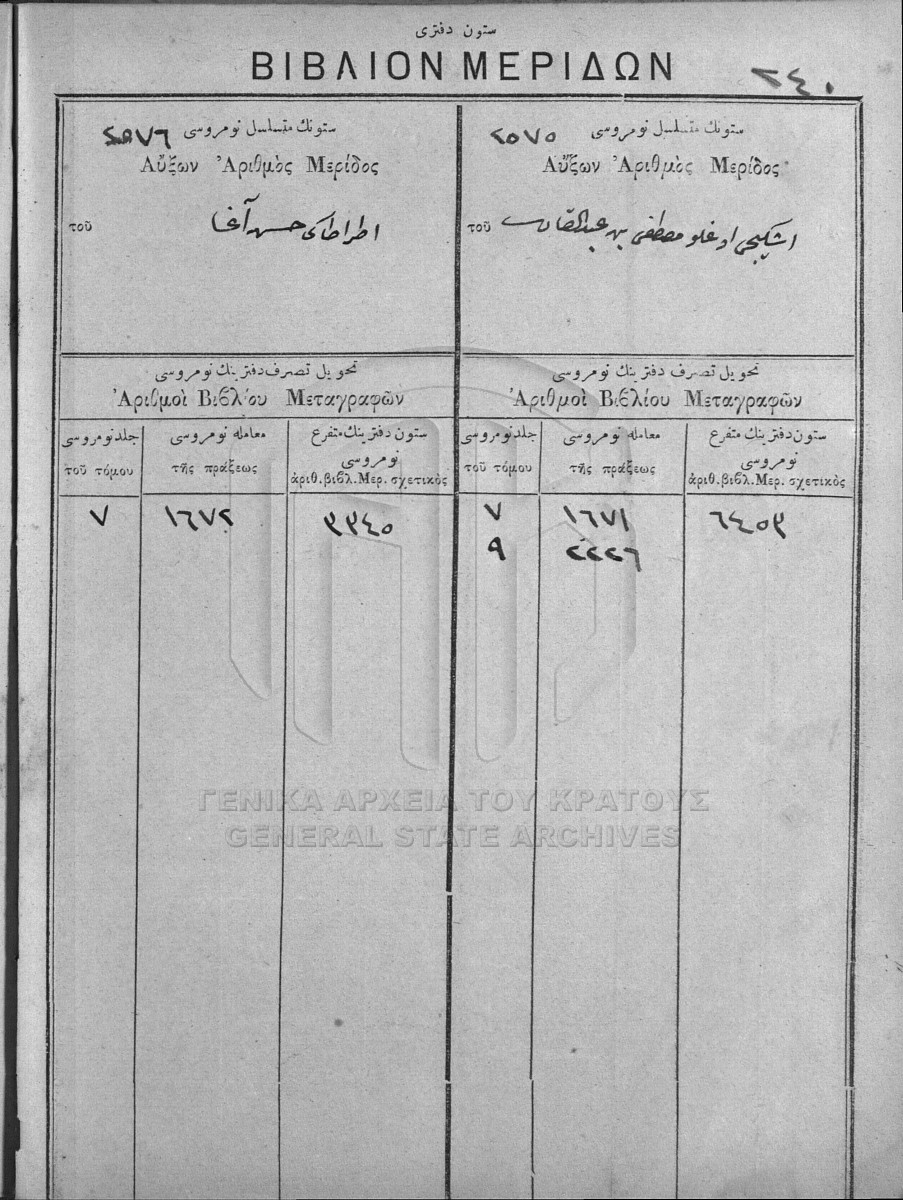 ستون دفتری
ΒΙΒΛΙΟΝ ΜΕΡΙΔΩΝ
٢٤٠
ستونك متسلسل نومروسی ٢٥٧٥
Αὔξων Ἀριθμὸς Μερίδος
τοῦ
اوغلو مصطفى بن عبدالقادر
تحويل تصرف دفترينك نومروسی
Ἀριθμοὶ Βιβλίου Μεταγραφῶν
جلد نومروسی
τοῦ τόμου
معامله نومروسی
τῆς πράξεως
ستون دفترينك متفرع
نومروسی
ἀριθ. βιβλ. Μερ. σχετικὸς
٧ ١٦٧١ ٦٤٥٣
٩ ٢٢٢٦
ستونك متسلسل نومروسی ٢٥٧٦
Αὔξων Ἀριθμὸς Μερίδος
τοῦ
حسن آغا
تحويل تصرف دفترينك نومروسی
Ἀριθμοὶ Βιβλίου Μεταγραφῶν
جلد نومروسی
τοῦ τόμου
معامله نومروسی
τῆς πράξεως
ستون دفترينك متفرع
نومروسی
ἀριθ. βιβλ. Μερ. σχετικὸς
٧ ١٦٧٢ ٣٣٤٥
ΓΕΝΙΚΑ ΑΡΧΕΙΑ ΤΟΥ ΚΡΑΤΟΥΣ
GENERAL STATE ARCHIVES